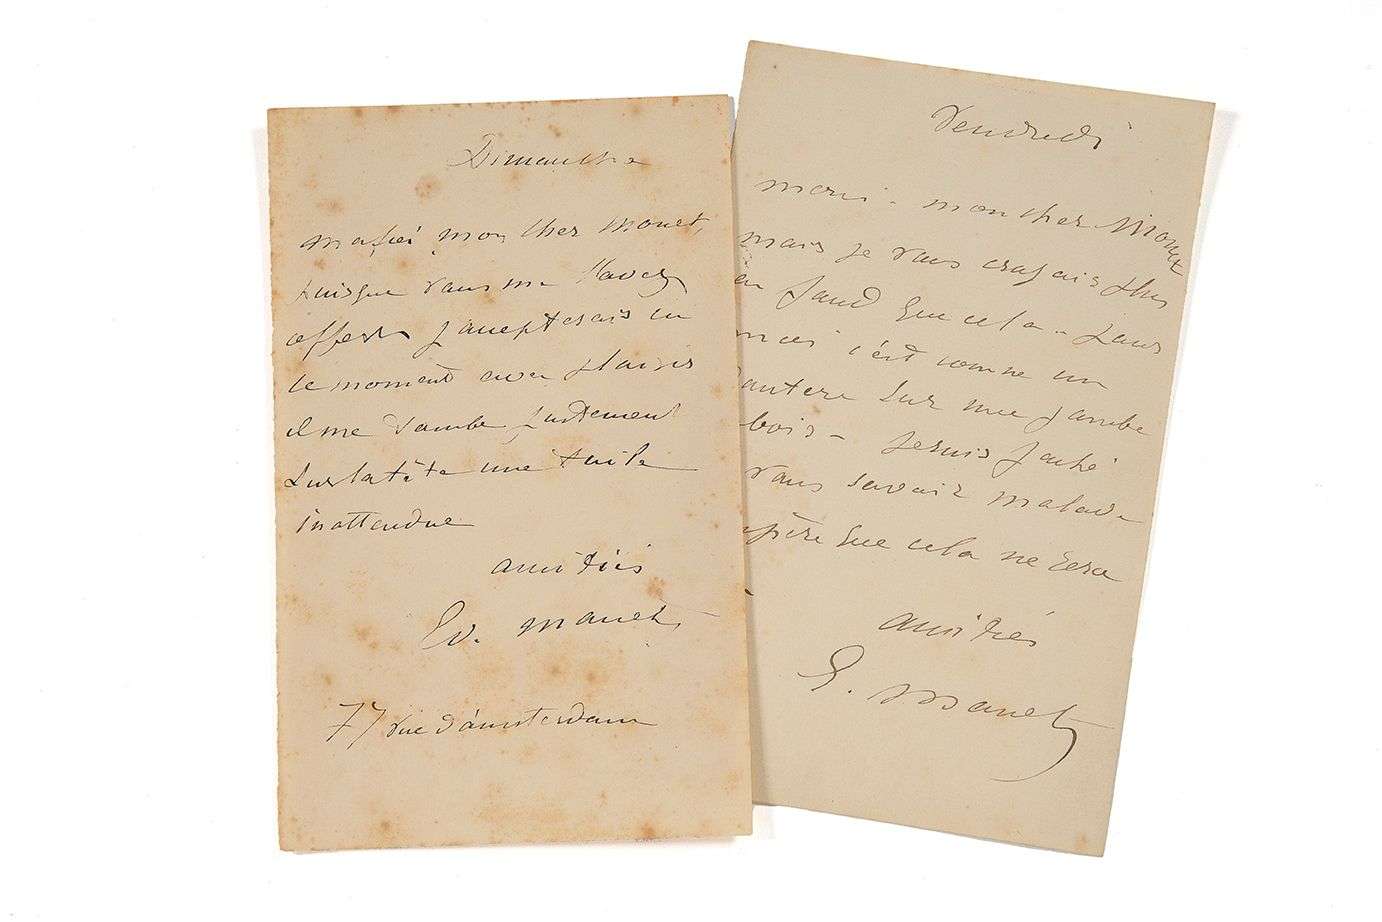 Dimanche
ma foi mon cher Monet,
puisque vous me l'avez
offert j'accepterais en
ce moment avec plaisir
il me tombe justement
sur la tête une tuile
inattendue
amitiés
Ed. Manet
77 rue d'amsterdam
Vendredi
merci - mon cher Monet
mais je vous croyais plus
en fond que cela - pour
moi c'est comme un
cautère sur une jambe
bois - je suis fâché
vous savoir malade
espère que cela ne sera
amitiés
E. Manet